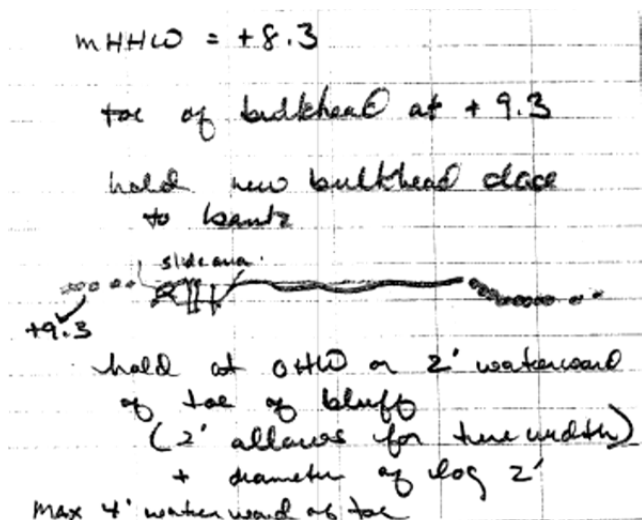 mHHW = +8.3
toe of bulkhead at +9.3
hold new bulkhead close
to bank
slide area
+9.3
hold at OHW or 2' waterward
of toe of bluff
(2' allows for tree width)
+ diameter of log 2'
Max 4' waterward of toe